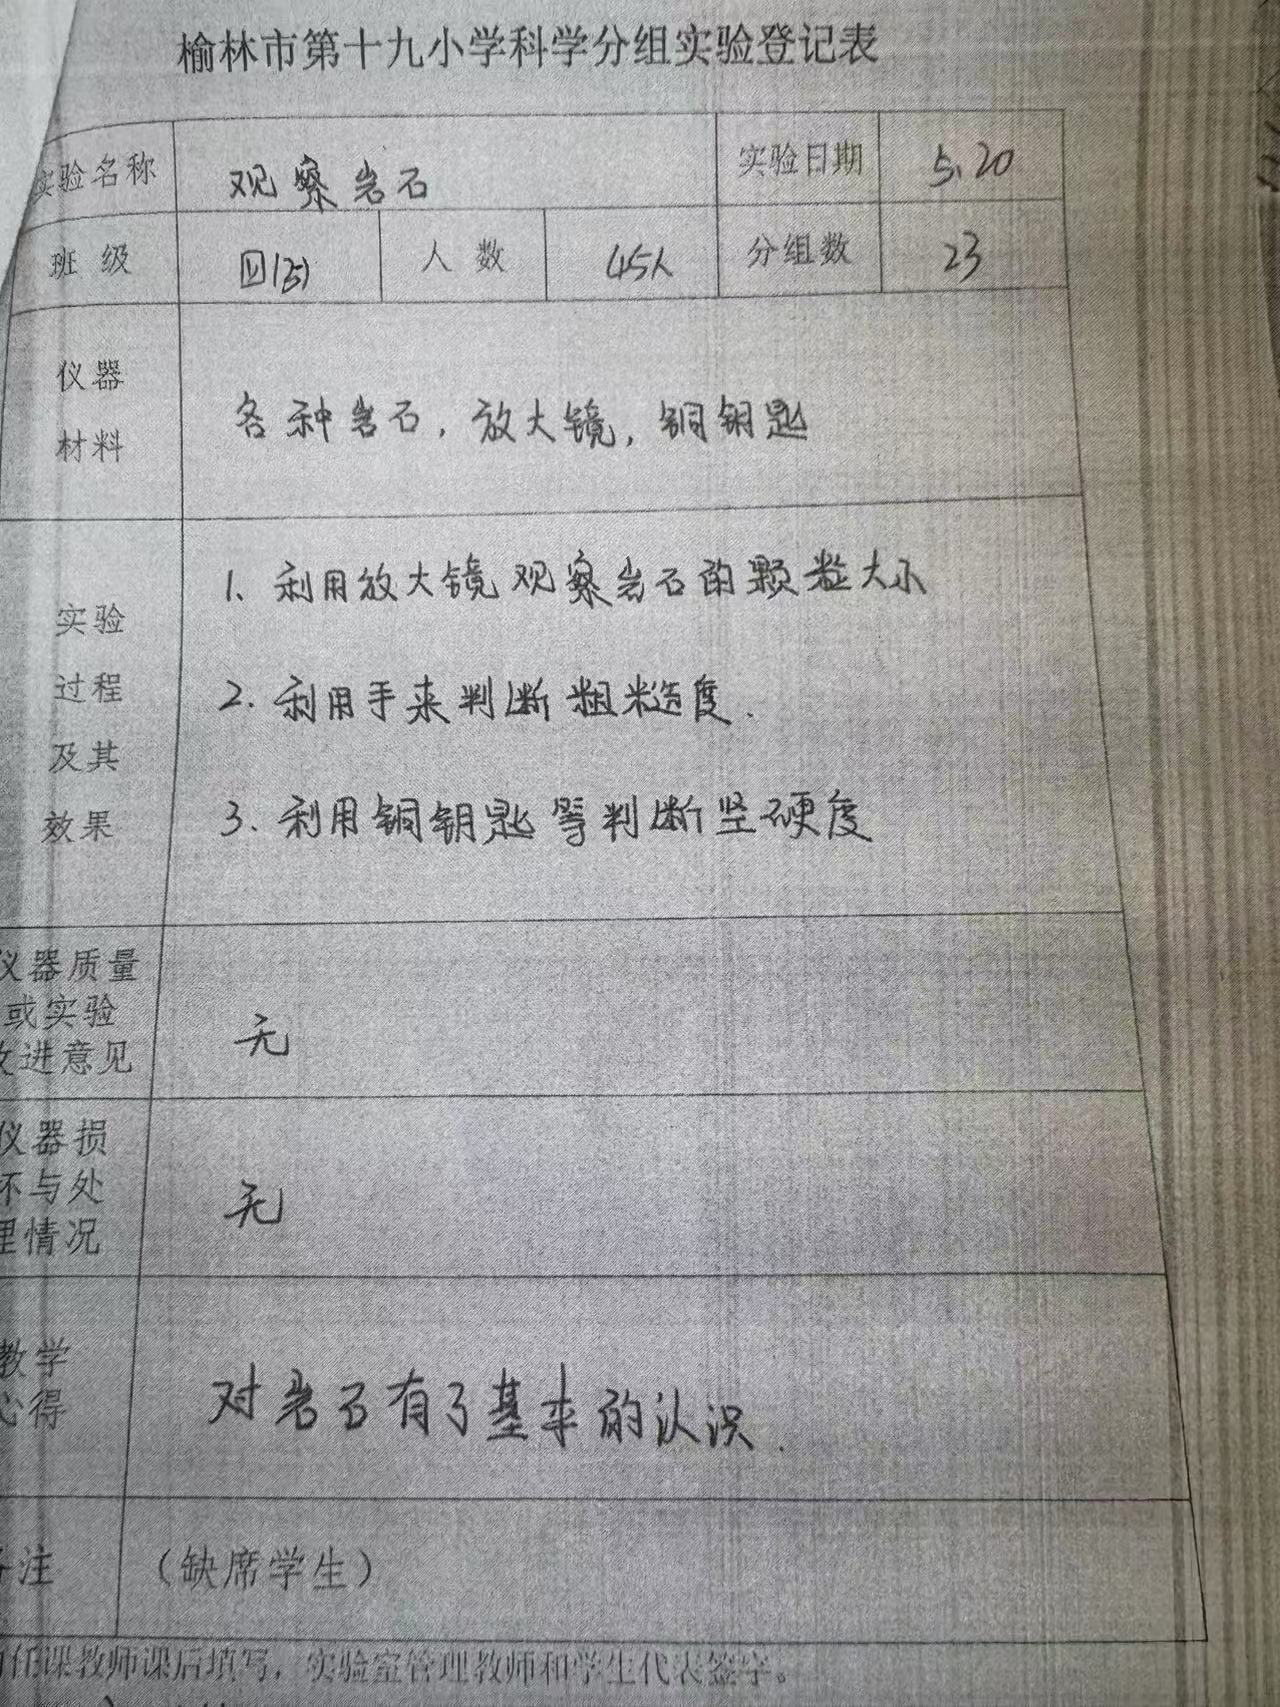 榆林市第十九小学科学分组实验登记表
实验名称 观察岩石 实验日期 5.20
班级 四(5) 人数 45人 分组数 23
仪器
材料
各种岩石，放大镜，铜钥匙
实验
过程
及其
效果
1、利用放大镜观察岩石的颗粒大小
2.利用手来判断粗糙度.
3.利用铜钥匙等判断坚硬度
仪器质量
或实验
改进意见
无
仪器损
坏与处
理情况
无
教学
心得
对岩石有了基本的认识.
备注 （缺席学生）
任课教师课后填写，实验室管理教师和学生代表签字。